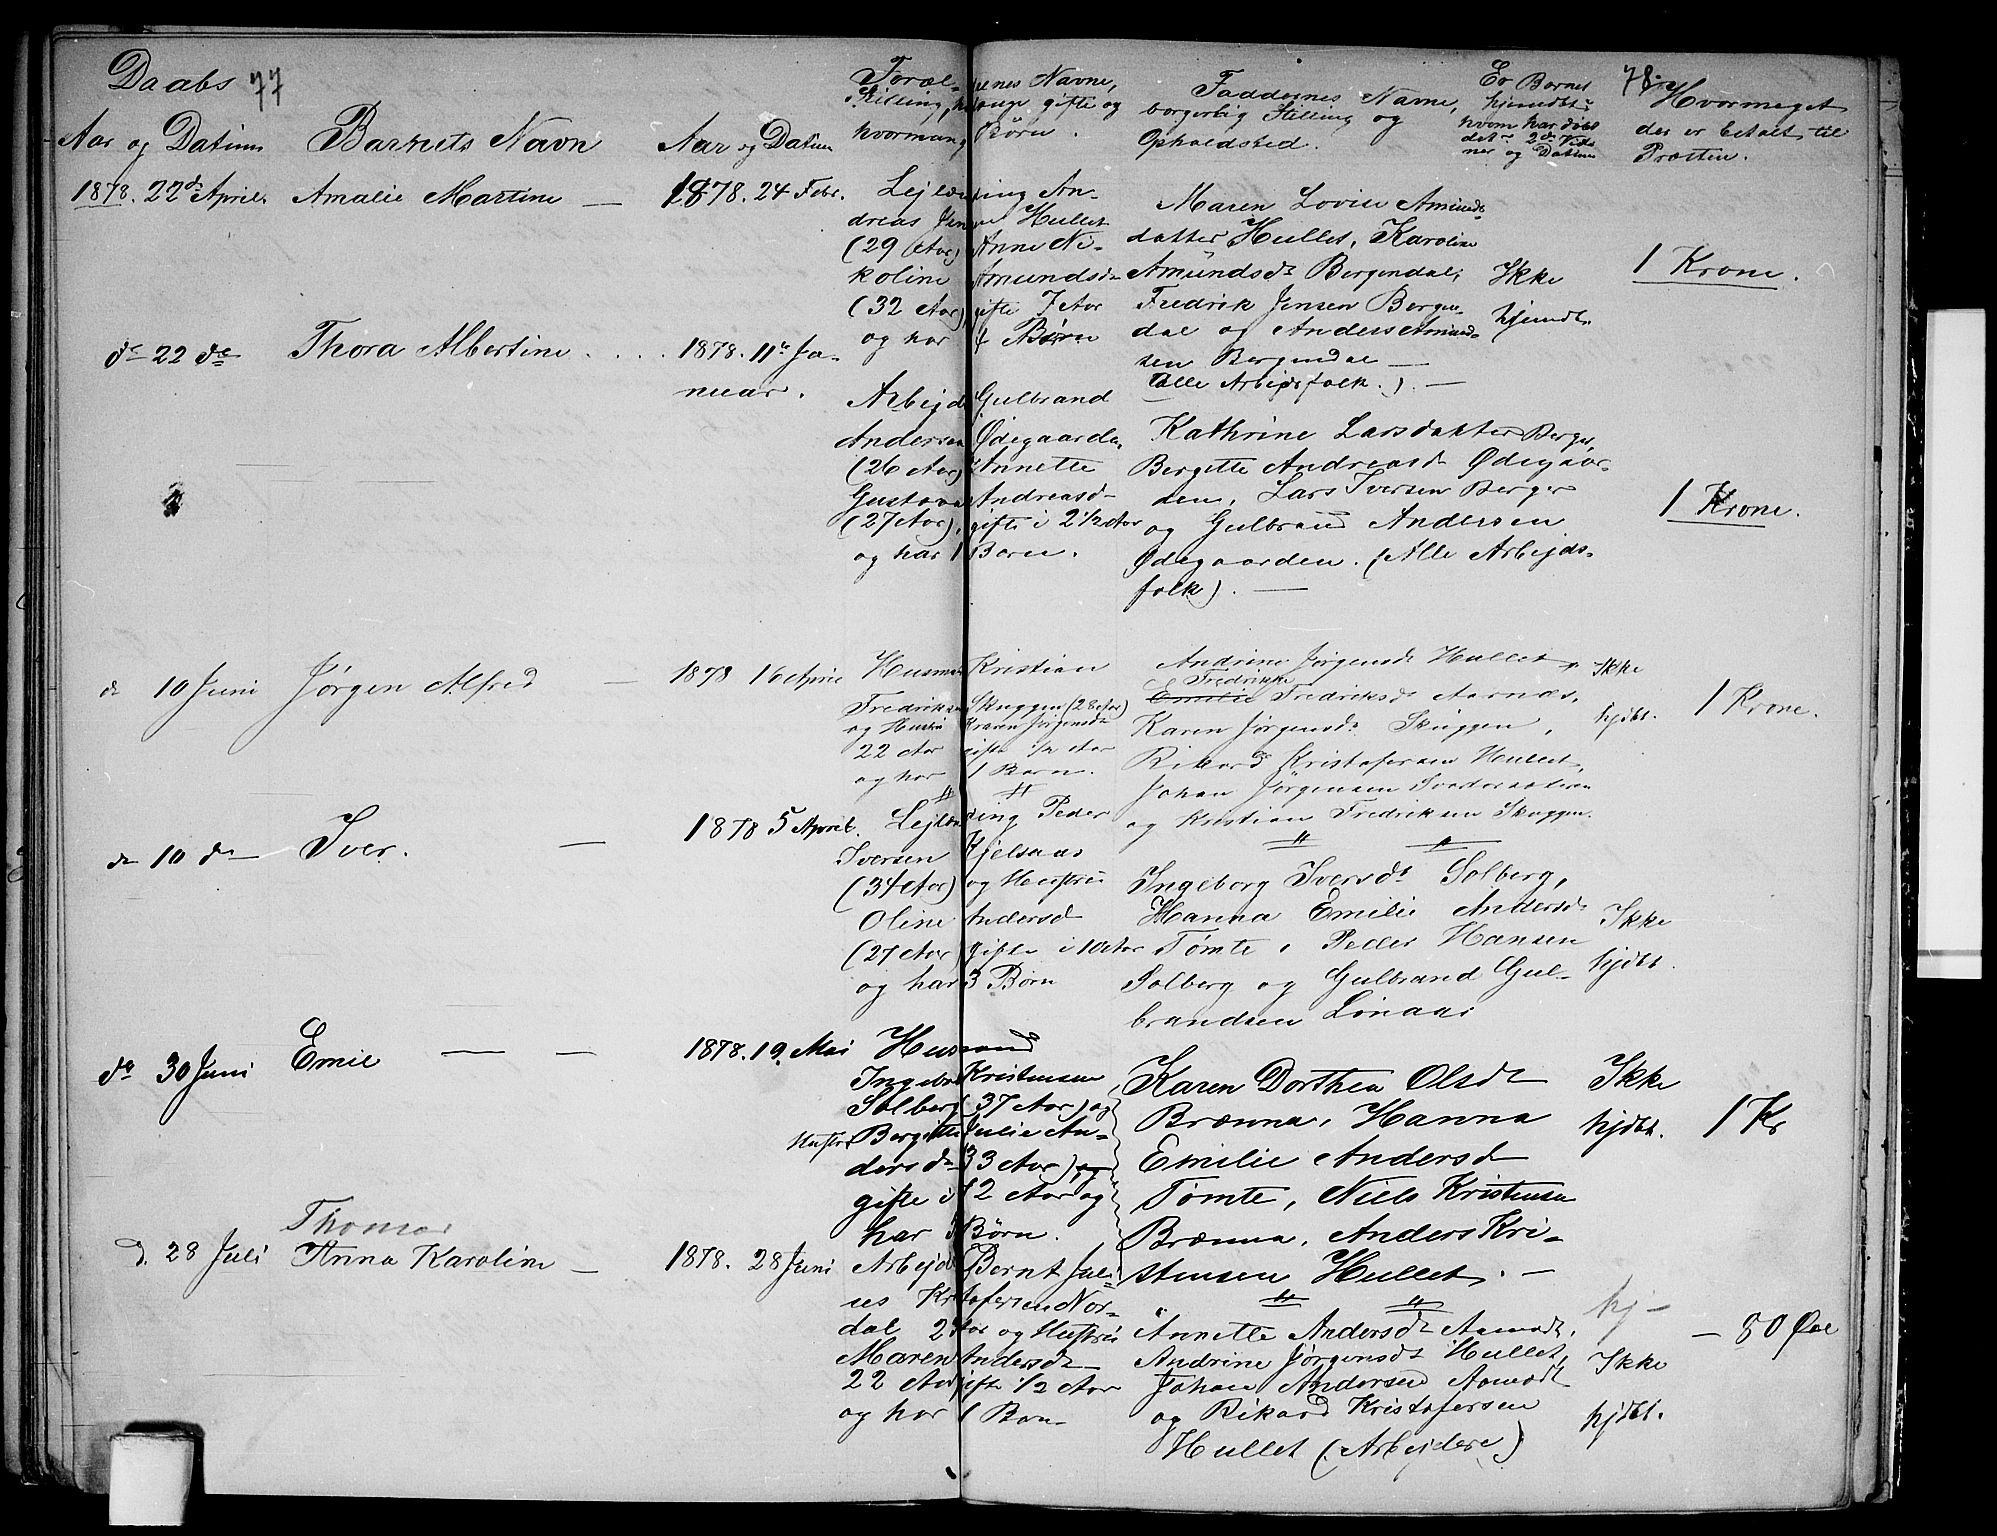 77
78.
Daabs
Aar og Datum
Barnets Navn
Aar og Datum
Foræl-drenes Navne,
Stilling, gifte og
hvormang Børn.
Faddernes Navne,
borgerlig Stilling og
Opholdsted.
Er Barnet
hjemdbt
hvem har døbt
det 2de Vid-
ner og Datum
Hvormeget
der er betalt til
Præsten.
1878. 22de April. Amalie Martine — 1878. 24 Febr.
Lejlænding An-
dreas Jensen Hullet
(29 Aar) Anne Ni-
koline Amundsdt
(32 Aar) gifte 7 Aar
og har 4 Børn
Maren Lovise Amunds-
datter Hullet, Karoline
Amundsdt Bergendal,
Fredrik Jensen Bergen-
dal og Anders Amund-
sen Bergendal —
(Alle Arbejdsfolk.). —
Ikke
hjemdt.
1 Krone.
do 22 do Thora Albertine. . . . 1878. 11te Ja-
nuar.
Arbejd Gulbrand
Andersen Ødegaarden
(26 Aar) Annette
Gustava Andreasd-
(27 Aar), gifte i 2 1/2 Aar
og har 1 Barn.
Kathrine Larsdatter Berger,
Bergette Andreasdt Ødegaar-
den, Lars Iversen Berger
og Gulbrand Andersen
Ødegaarden. (Alle Arbejds-
folk). —
1 Krone.
do 10 Juni Jørgen Alfred — 1878 16 April
Husmand Kristian
Fredriksen Skuggen (28 Aar)
og Hustru Karen Jørgensdt
22 Aar gifte 1/2 Aar
og har 1 Barn.
Andrine Jørgensdt Hullet,
Fredrikke
Emilie Fredriksdt Aarnæs,
Karen Jørgensdt Skuggen,
Rikard Kristofersen Hullet,
Johan Jørgensen
og Kristian Fredriksen Skuggen.
Ikke
hjdbt.
1 Krone.
do 10 do Iver. — 1878 5 April.
Lejlænding Peder
Iversen Kjelsaas
(34 Aar) og Hustru
Oline Andersd
(27 Aar) gifte i 10 Aar
og har 3 Børn
Ingeborg Iversdt Solberg,
Hanna Emilie Andersdt
Tømte, Peder Hansen
Solberg og Gulbrand Gul-
brandsen Lonaas
Ikke
hjdbt.
do 30 Juni Emil — — 1878. 19. Mai
Husmand
Ingebr Kristensen
Solberg (37 Aar) og
Hustru Bergitte Julie An-
dersdt 33 Aar) og
gifte i 12 Aar og
har Børn.
Karen Dorthea Olsdt
Brænna, Hanna
Emilie Andersdt
Tømte, Niels Kristensen
Brænna, Anders Kri-
stensen Hullet. —
Ikke
hjdbt.
1 Kr
Thomas
d. 28 Juli Anna Karoline — 1878. 28 Juni
Arbejder Bernt Juli-
us Kristofersen Nor-
dal 2 Aar og Hustru
Maren Andersdt
22 Aar gifte 1/2 Aar
og har 1 Barn
Annette Andersdt Aamodt,
Andrine Jørgensdt Hullet,
Johan Andersen Aamodt
og Rikard Kristofersen
Hullet (Arbejdere)
hj-
Ikke
hjdbt.
— 80 Øre